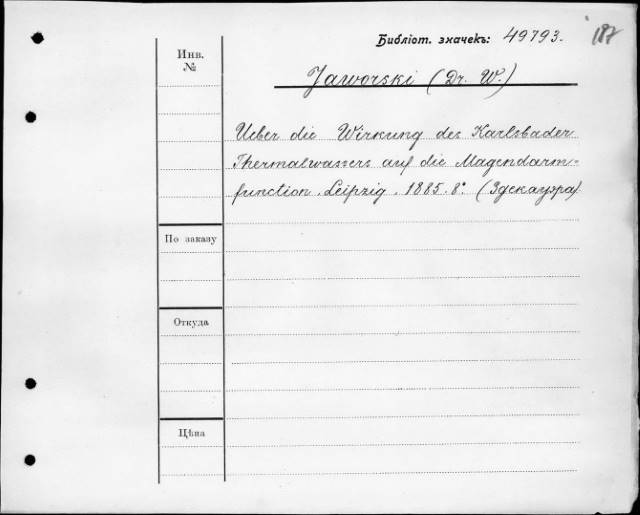 Библіот. значекъ: 49793. 187
Инв.
№
Jaworski (Dr. W.)
Ueber die Wirkung des Karlsbader
Thermalwassers auf die Magendarm-
function. Leipzig. 1885. 8°. (Здекауэра)
По заказу
Откуда
Цѣна